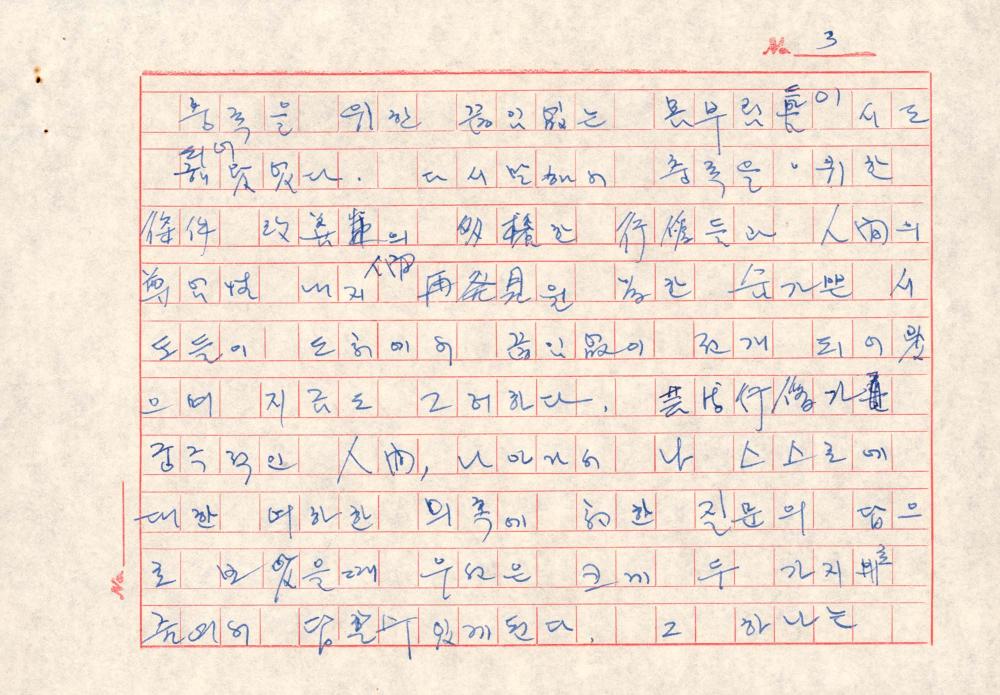 No. 3
충족을 위한 끊임없는 몸부림들이 시도
되어 왔었다. 다시 말해서 충족을 위한
条件 改善의 多樣한 行爲들과 人間의
尊嚴性 내지 人間 再発見을 위한 숨가쁜 시
도들이 도처에서 끊임없이 전개 되어 왔
으며 지금도 그러하다. 芸術行爲가
궁극적인 人間, 나아가서 나 스스로에
대한 여하한 의혹에 対한 질문의 답으
로 보았을때 우선은 크게 두 가지로
줄여서 답할수 있게된다. 그 하나는
No.